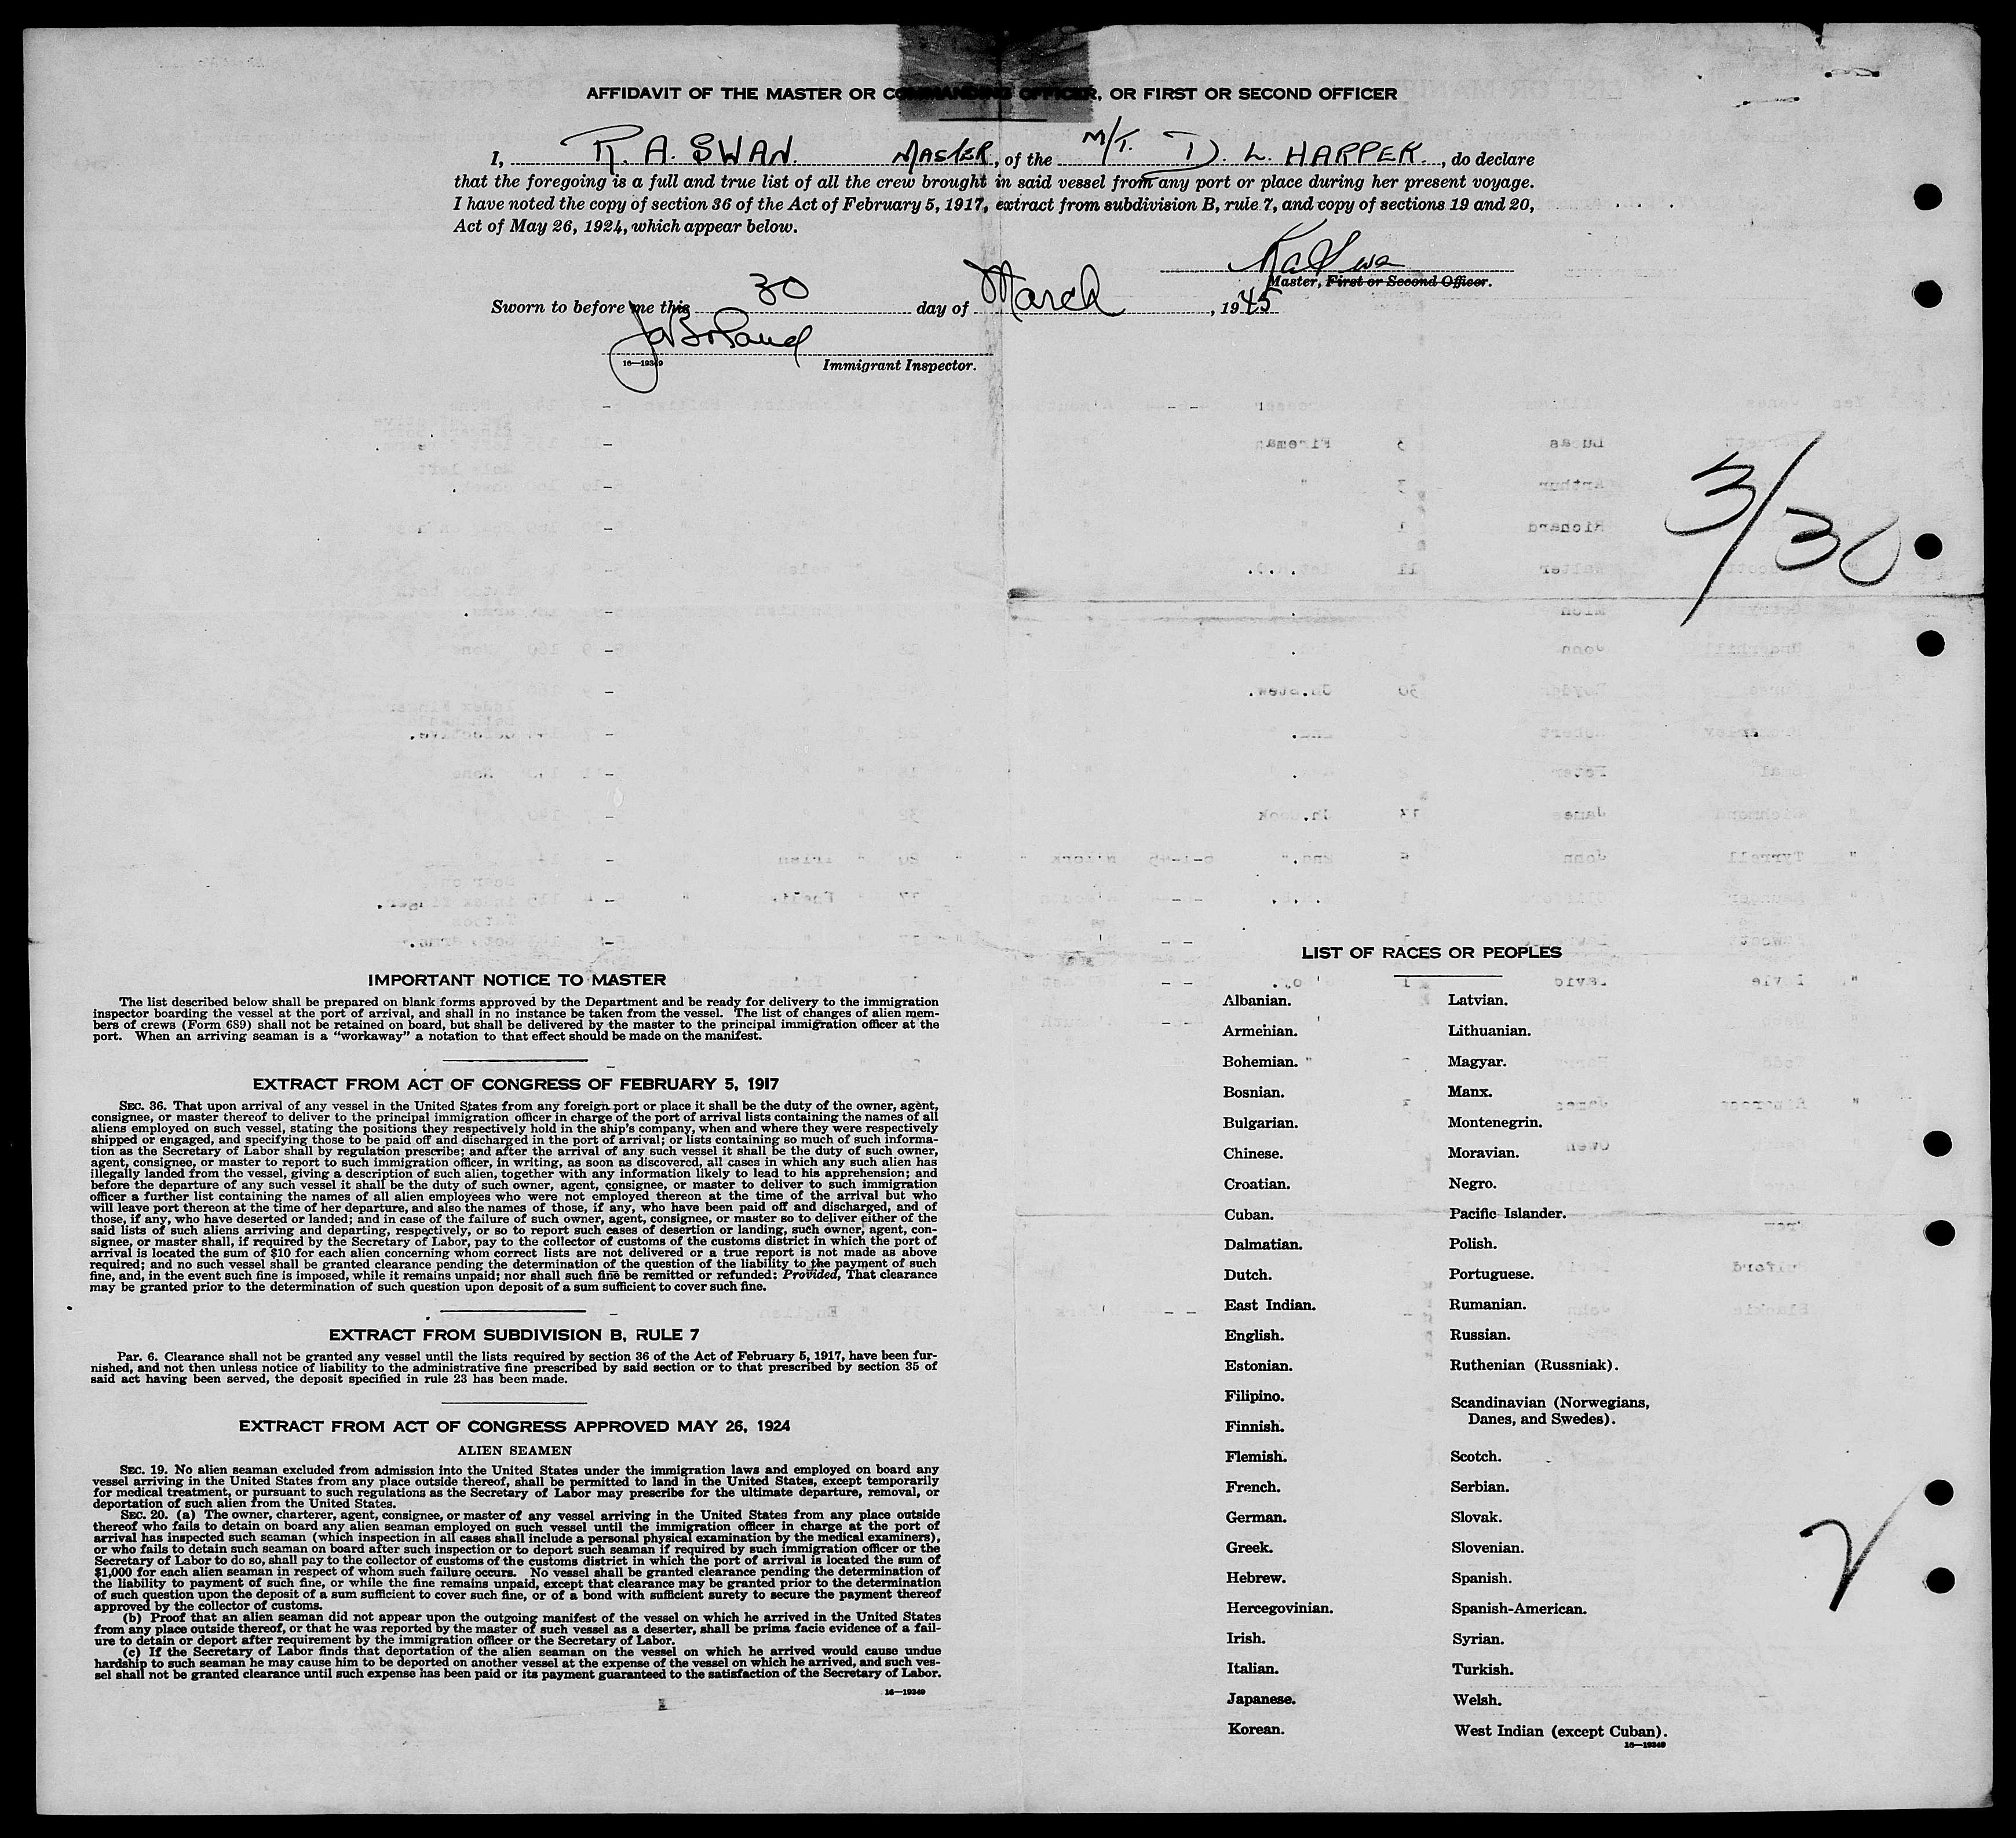 AFFIDAVIT OF THE MASTER OR COMMANDING OFFICER, OR FIRST OR SECOND OFFICER
I, R. A. SWAN. MASTER, of the M/T. D. L. HARPER., do declare
that the foregoing is a full and true list of all the crew brought in said vessel from any port or place during her present voyage.
I have noted the copy of section 36 of the Act of February 5, 1917, extract from subdivision B, rule 7, and copy of sections 19 and 20,
Act of May 26, 1924, which appear below.
Master, First or Second Officer.
Sworn to before me this 30 day of March, 1945
16—19349 Immigrant Inspector.
3/30
IMPORTANT NOTICE TO MASTER
The list described below shall be prepared on blank forms approved by the Department and be ready for delivery to the immigration
inspector boarding the vessel at the port of arrival, and shall in no instance be taken from the vessel. The list of changes of alien mem-
bers of crews (Form 689) shall not be retained on board, but shall be delivered by the master to the principal immigration officer at the
port. When an arriving seaman is a "workaway" a notation to that effect should be made on the manifest.
EXTRACT FROM ACT OF CONGRESS OF FEBRUARY 5, 1917
SEC. 36. That upon arrival of any vessel in the United States from any foreign port or place it shall be the duty of the owner, agent,
consignee, or master thereof to deliver to the principal immigration officer in charge of the port of arrival lists containing the names of all
aliens employed on such vessel, stating the positions they respectively hold in the ship's company, when and where they were respectively
shipped or engaged, and specifying those to be paid off and discharged in the port of arrival; or lists containing so much of such informa-
tion as the Secretary of Labor shall by regulation prescribe; and after the arrival of any such vessel it shall be the duty of such owner,
agent, consignee, or master to report to such immigration officer, in writing, as soon as discovered, all cases in which any such alien has
illegally landed from the vessel, giving a description of such alien, together with any information likely to lead to his apprehension; and
before the departure of any such vessel it shall be the duty of such owner, agent, consignee, or master to deliver to such immigration
officer a further list containing the names of all alien employees who were not employed thereon at the time of the arrival but who
will leave port thereon at the time of her departure, and also the names of those, if any, who have been paid off and discharged, and of
those, if any, who have deserted or landed; and in case of the failure of such owner, agent, consignee, or master so to deliver either of the
said lists of such aliens arriving and departing, respectively, or so to report such cases of desertion or landing, such owner, agent, con-
signee, or master shall, if required by the Secretary of Labor, pay to the collector of customs of the customs district in which the port of
arrival is located the sum of $10 for each alien concerning whom correct lists are not delivered or a true report is not made as above
required; and no such vessel shall be granted clearance pending the determination of the question of the liability to the payment of such
fine, and, in the event such fine is imposed, while it remains unpaid; nor shall such fine be remitted or refunded: Provided, That clearance
may be granted prior to the determination of such question upon deposit of a sum sufficient to cover such fine.
EXTRACT FROM SUBDIVISION B, RULE 7
Par. 6. Clearance shall not be granted any vessel until the lists required by section 36 of the Act of February 5, 1917, have been fur-
nished, and not then unless notice of liability to the administrative fine prescribed by said section or to that prescribed by section 35 of
said act having been served, the deposit specified in rule 23 has been made.
EXTRACT FROM ACT OF CONGRESS APPROVED MAY 26, 1924
ALIEN SEAMEN
SEC. 19. No alien seaman excluded from admission into the United States under the immigration laws and employed on board any
vessel arriving in the United States from any place outside thereof, shall be permitted to land in the United States, except temporarily
for medical treatment, or pursuant to such regulations as the Secretary of Labor may prescribe for the ultimate departure, removal, or
deportation of such alien from the United States.
SEC. 20. (a) The owner, charterer, agent, consignee, or master of any vessel arriving in the United States from any place outside
thereof who fails to detain on board any alien seaman employed on such vessel until the immigration officer in charge at the port of
arrival has inspected such seaman (which inspection in all cases shall include a personal physical examination by the medical examiners),
or who fails to detain such seaman on board after such inspection or to deport such seaman if required by such immigration officer or the
Secretary of Labor to do so, shall pay to the collector of customs of the customs district in which the port of arrival is located the sum of
$1,000 for each alien seaman in respect of whom such failure occurs. No vessel shall be granted clearance pending the determination of
the liability to payment of such fine, or while the fine remains unpaid, except that clearance may be granted prior to the determination
of such question upon the deposit of a sum sufficient to cover such fine, or of a bond with sufficient surety to secure the payment thereof
approved by the collector of customs.
(b) Proof that an alien seaman did not appear upon the outgoing manifest of the vessel on which he arrived in the United States
from any place outside thereof, or that he was reported by the master of such vessel as a deserter, shall be prima facie evidence of a fail-
ure to detain or deport after requirement by the immigration officer or the Secretary of Labor.
(c) If the Secretary of Labor finds that deportation of the alien seaman on the vessel on which he arrived would cause undue
hardship to such seaman he may cause him to be deported on another vessel at the expense of the vessel on which he arrived, and such ves-
sel shall not be granted clearance until such expense has been paid or its payment guaranteed to the satisfaction of the Secretary of Labor.
16—19349
LIST OF RACES OR PEOPLES
Albanian.
Armenian.
Bohemian.
Bosnian.
Bulgarian.
Chinese.
Croatian.
Cuban.
Dalmatian.
Dutch.
East Indian.
English.
Estonian.
Filipino.
Finnish.
Flemish.
French.
German.
Greek.
Hebrew.
Hercegovinian.
Irish.
Italian.
Japanese.
Korean.
Latvian.
Lithuanian.
Magyar.
Manx.
Montenegrin.
Moravian.
Negro.
Pacific Islander.
Polish.
Portuguese.
Rumanian.
Russian.
Ruthenian (Russniak).
Scandinavian (Norwegians,
Danes, and Swedes).
Scotch.
Serbian.
Slovak.
Slovenian.
Spanish.
Spanish-American.
Syrian.
Turkish.
Welsh.
West Indian (except Cuban).
16—19349